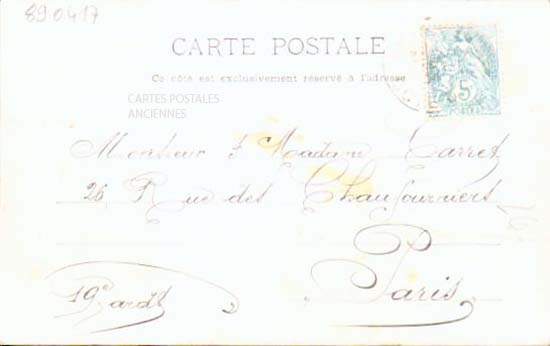 890417
CARTE POSTALE
Ce côté est exclusivement réservé à l'adresse
CARTES POSTALES
ANCIENNES
5
Monsieur & Madame Carret
26 Rue des Chaufourniers
Paris
19e ardt